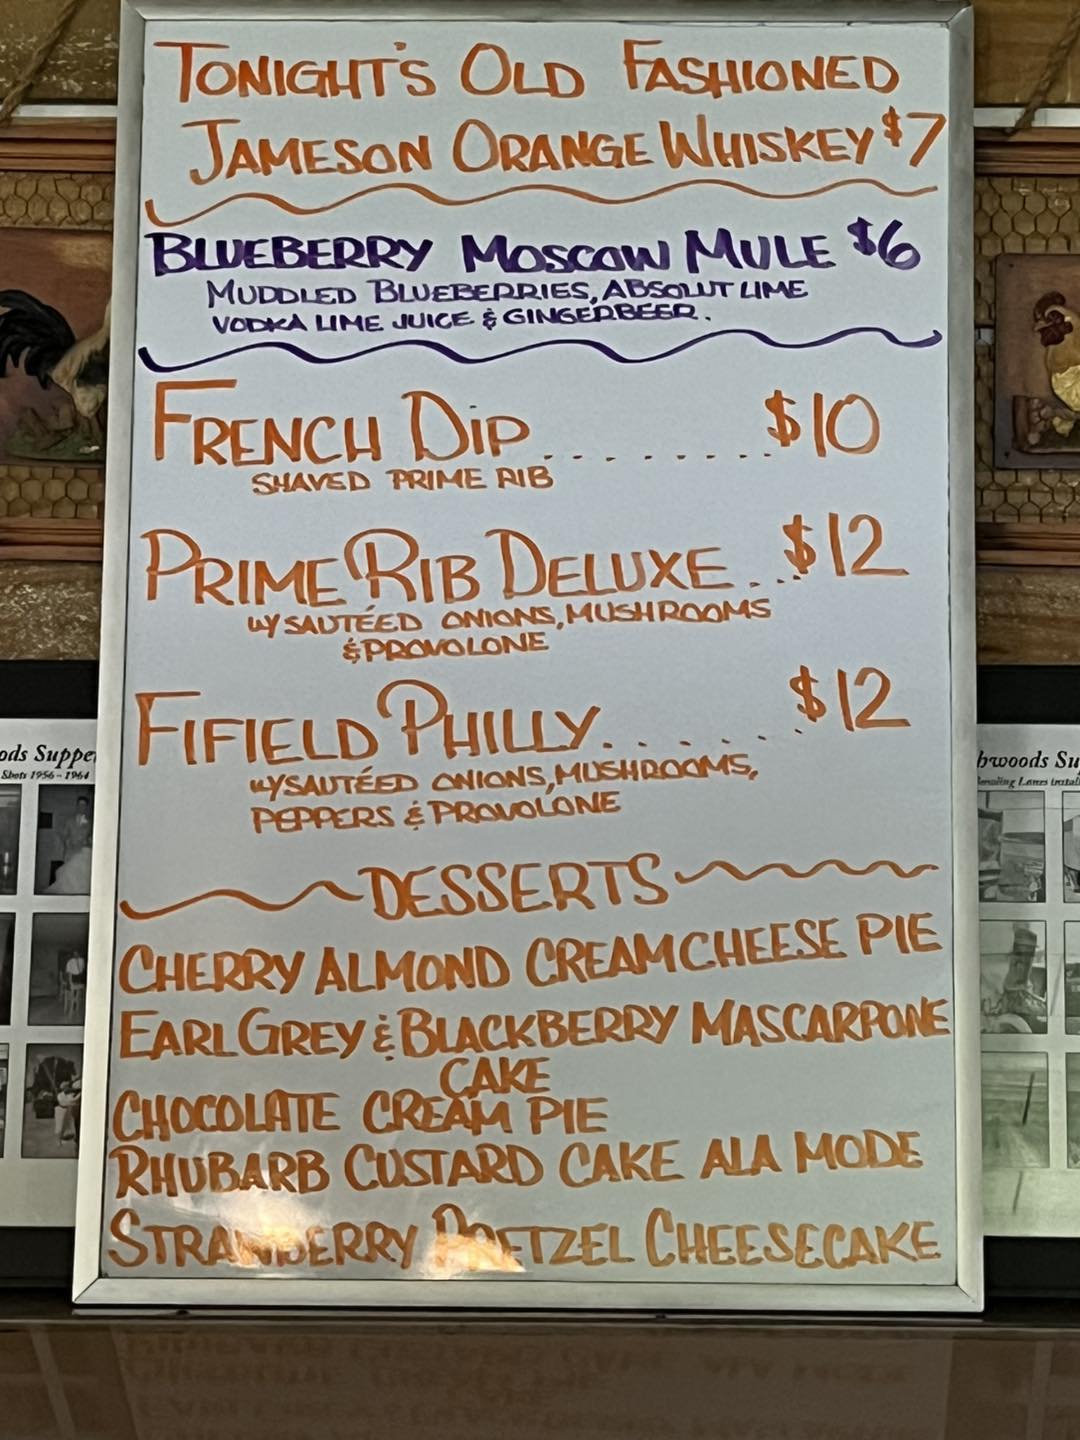 TONIGHT'S OLD FASHIONED
JAMESON ORANGE WHISKEY $7
BLUEBERRY MOSCOW MULE $6
MUDDLED BLUEBERRIES, ABSOLUT LIME
VODKA LIME JUICE & GINGERBEER.
FRENCH DIP......... $10
SHAVED PRIME RIB
PRIME RIB DELUXE..... $12
W/ SAUTÉED ONIONS, MUSHROOMS
& PROVOLONE
FIFIELD PHILLY....... $12
W/ SAUTÉED ONIONS, MUSHROOMS,
PEPPERS & PROVOLONE
DESSERTS
CHERRY ALMOND CREAM CHEESE PIE
EARL GREY & BLACKBERRY MASCARPONE
CAKE
CHOCOLATE CREAM PIE
RHUBARB CUSTARD CAKE ALA MODE
STRAWBERRY PRETZEL CHEESECAKE
ods Suppe
Shots 1956 - 1964
hwoods Su